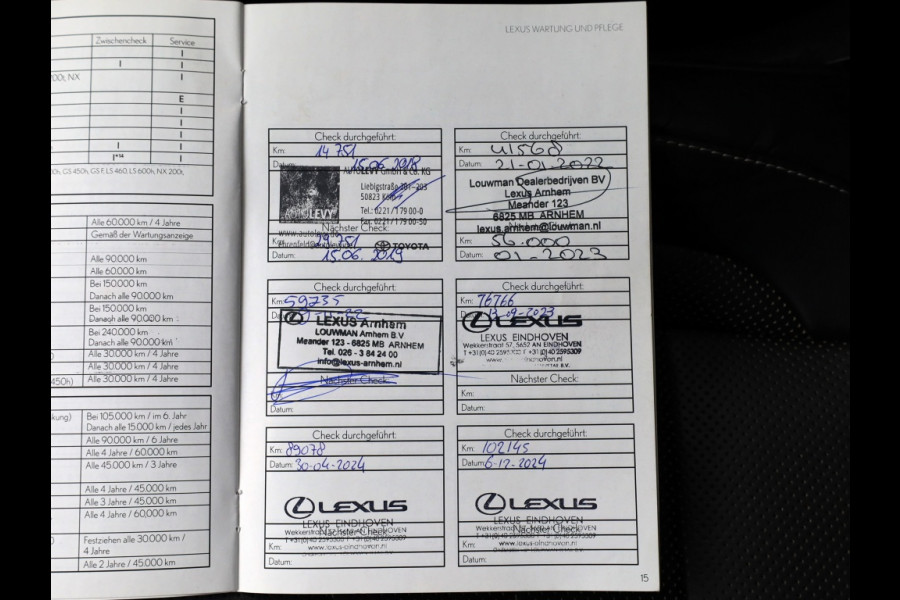 Zwischencheck Service
I
I I
00t, NX I
E
I
I
I
I I
I*¹⁴ I
0h, GS 450h, GS F, LS 460, LS 600h, NX 200t,
Alle 60.000 km / 4 Jahre
Gemäß der Wartungsanzeige
Alle 90.000 km
Alle 60.000 km
Bei 150.000 km
Danach alle 90.000 km
Bei 150.000 km
Danach alle 90.000 km
Bei 240.000 km
Danach alle 90.000 km
Alle 30.000 km / 4 Jahre
Alle 30.000 km / 4 Jahre
450h) Alle 30.000 km / 4 Jahre
kung) Bei 105.000 km / im 6. Jahr
Danach alle 15.000 km / jedes Jahr
Alle 90.000 km / 6 Jahre
Alle 4 Jahre / 60.000 km
Alle 45.000 km / 3 Jahre
Alle 4 Jahre / 45.000 km
Alle 3 Jahre / 45.000 km
Alle 4 Jahre / 60.000 km
Festziehen alle 30.000 km /
4 Jahre
Alle 2 Jahre / 45.000 km
LEXUS WARTUNG UND PFLEGE
Check durchgeführt:
Km: 14 751
Datum: 15.06.2018
AUTOLEVY GmbH & Co. KG
Liebigstraße 201-203
50823 Köln
AUTOLEVY
Tel.: 0221/1 79 00-0
Fax: 0221/1 79 00-50
Nächster Check:
Km: 29 751
TOYOTA
Datum: 15.06.2019
Check durchgeführt:
Km: 41568
Datum: 21-01-2022
Louwman Dealerbedrijven BV
Lexus Arnhem
Meander 123
6825 MB ARNHEM
lexus.arnhem@louwman.nl
Km: 56.000
Datum: 01-2023
Check durchgeführt:
Km: 59735
LEXUS Arnhem
LOUWMAN Arnhem B.V
Meander 123 - 6825 MB ARNHEM
Tel. 026 - 3 84 24 00
info@lexus-arnhem.nl
Nächster Check:
Datum:
Check durchgeführt:
Km: 76766
Datum: 13-09-2023
LEXUS
LEXUS EINDHOVEN
Wekkerstraat 57, 5652 AN EINDHOVEN
T +31(0)40 2595309
Nächster Check:
Km:
Datum:
Check durchgeführt:
Km: 89078
Datum: 30-04-2024
LEXUS
LEXUS EINDHOVEN
Nächster Check:
Km: www.lexus-eindhoven.nl
Datum:
Check durchgeführt:
Km: 102145
Datum: 6-12-2024
LEXUS
LEXUS EINDHOVEN
Nächster Check:
Km: www.lexus-eindhoven.nl
Datum:
15